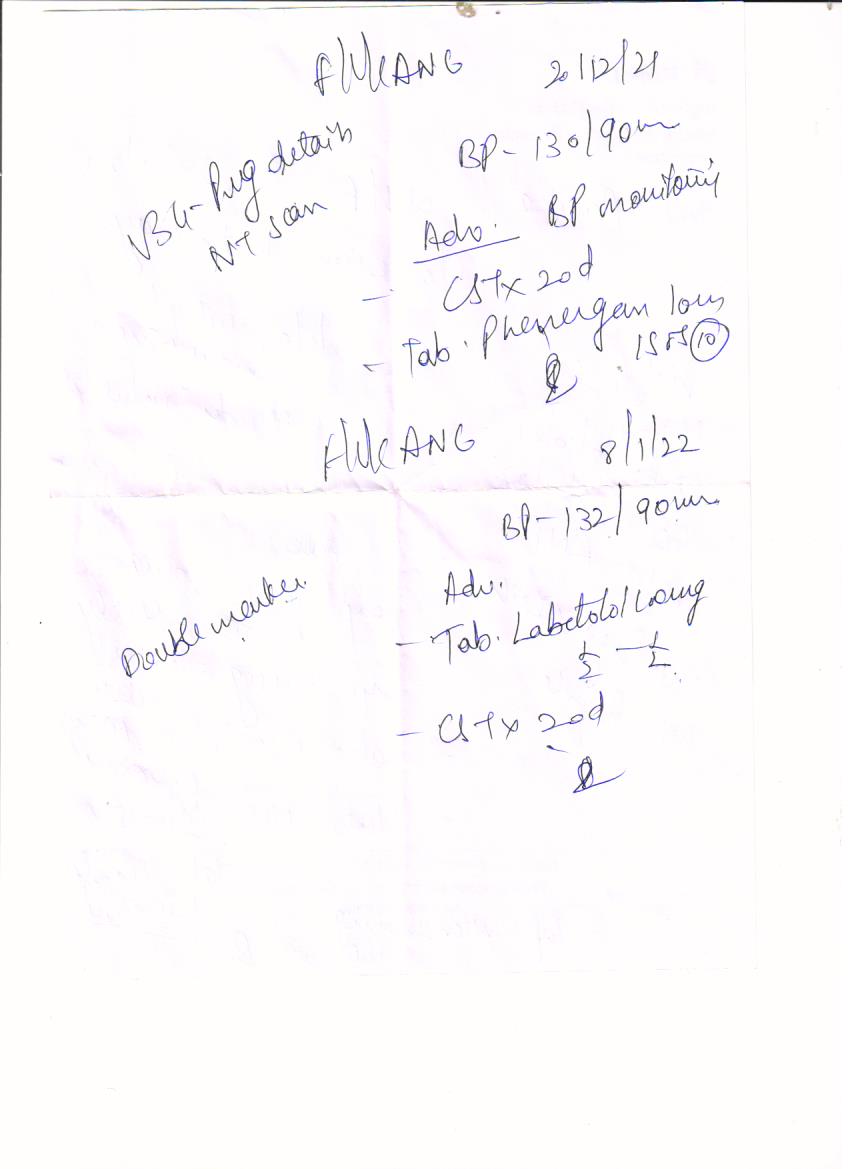 F/U/C ANG 20/12/21
BP - 130/90
USG - Preg details
NT scan
Adv. BP monitoring
- CST x 20d
- Tab. Phenergan 10mg
1SOS (10)
F/U/C ANG 8/1/22
BP - 132/90mm
Double marker
Adv.
- Tab. Labetolol 100mg
1/2 - 1/2
- CST x 20d